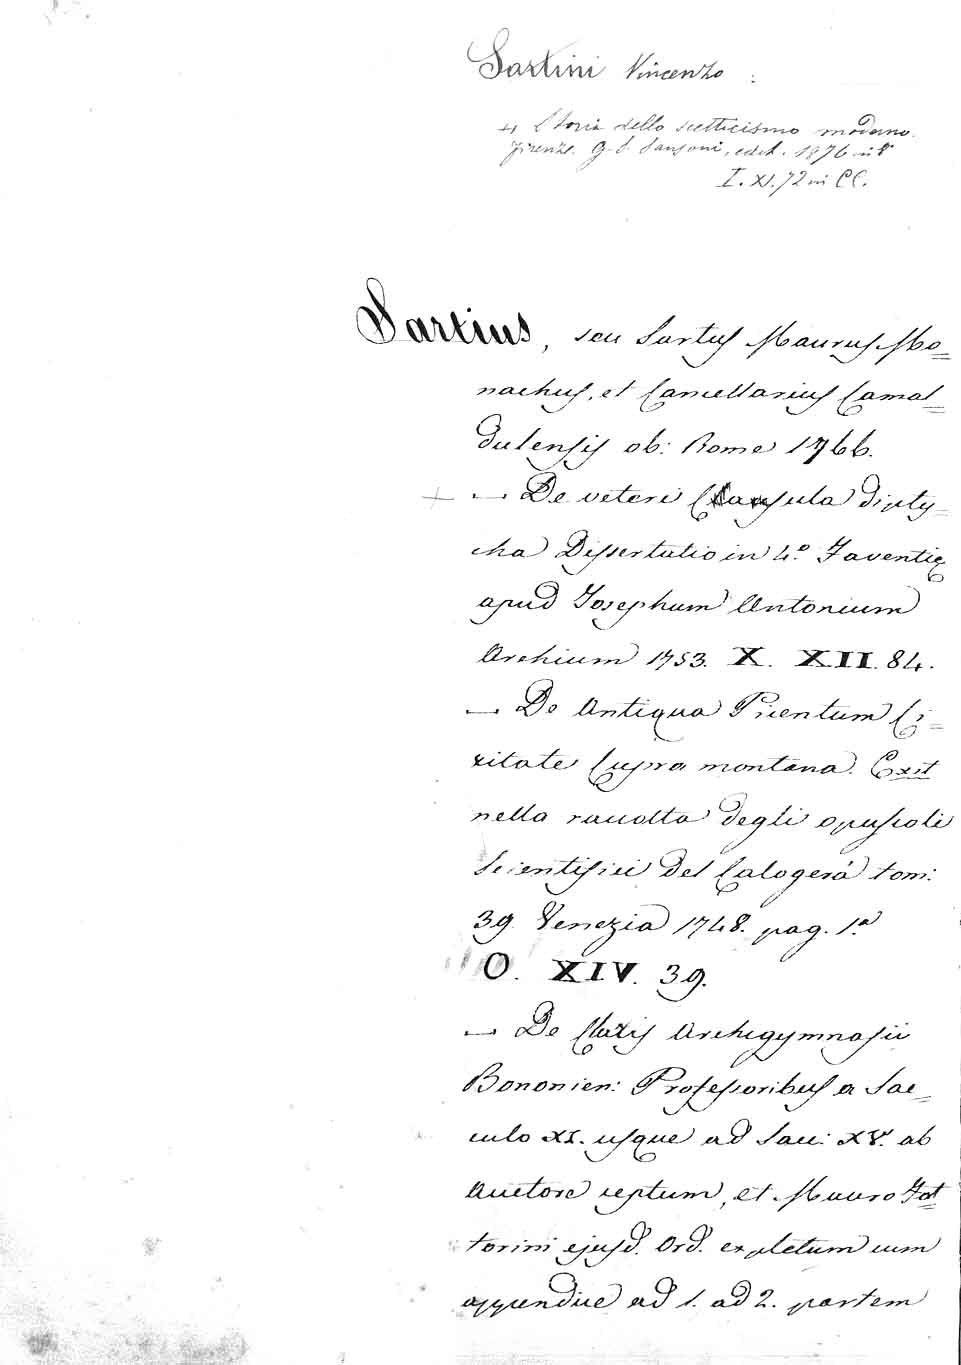 Sartini Vincenzo :
+ Storia dello scetticismo moderno.
Firenze. G. S. Sansoni, edit. 1876 in 8°
I. XI. 72 in CC.
Sartius, seu Sartus Maurus Mo=
nachus, et Cancellarius Camal=
dulensis ob: Rome 1766.
+ — De veteri Casula dipty=
cha Dissertatio in 4.° Faventiæ
apud Josephum Antonium
Archium 1753. X. XII. 84.
— De Antiqua Picentum Ci=
vitate Cupra montana. Exit
nella raccolta degli opuscoli
Scientifici del Calogerá tom:
39. Venezia 1748. pag. 1.a
O. XIV. 39.
— De Claris Archigymnasii
Bononien: Professoribus a Sae=
culo XI. usque ad Saec: XV. ab
Auctore ceptum, et Mauro Fat=
torini ejusd. Ord. expletum cum
appendice ad 1. ad 2. partem